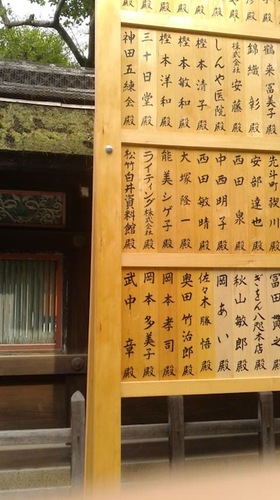 鶴来富美子 殿
錦織 彰 殿
株式会社 安藤 殿
しんや医院 殿
樫本清子 殿
樫本敏和 殿
樫本洋和 殿
三十日堂 殿
神田五練会 殿
先斗町 駿川 殿
安部達也 殿
西田 泉 殿
中西明子 殿
西田敏晴 殿
大塚隆一 殿
能美シゲ子 殿
ライティング株式会社 殿
松竹白井資料館 殿
冨田 豊之 殿
ぎをん八咫本店 殿
秋山敏郎 殿
岡 あい 殿
佐々木勝悟 殿
奥田竹治郎 殿
岡本孝司 殿
岡本多美子 殿
武中 章 殿